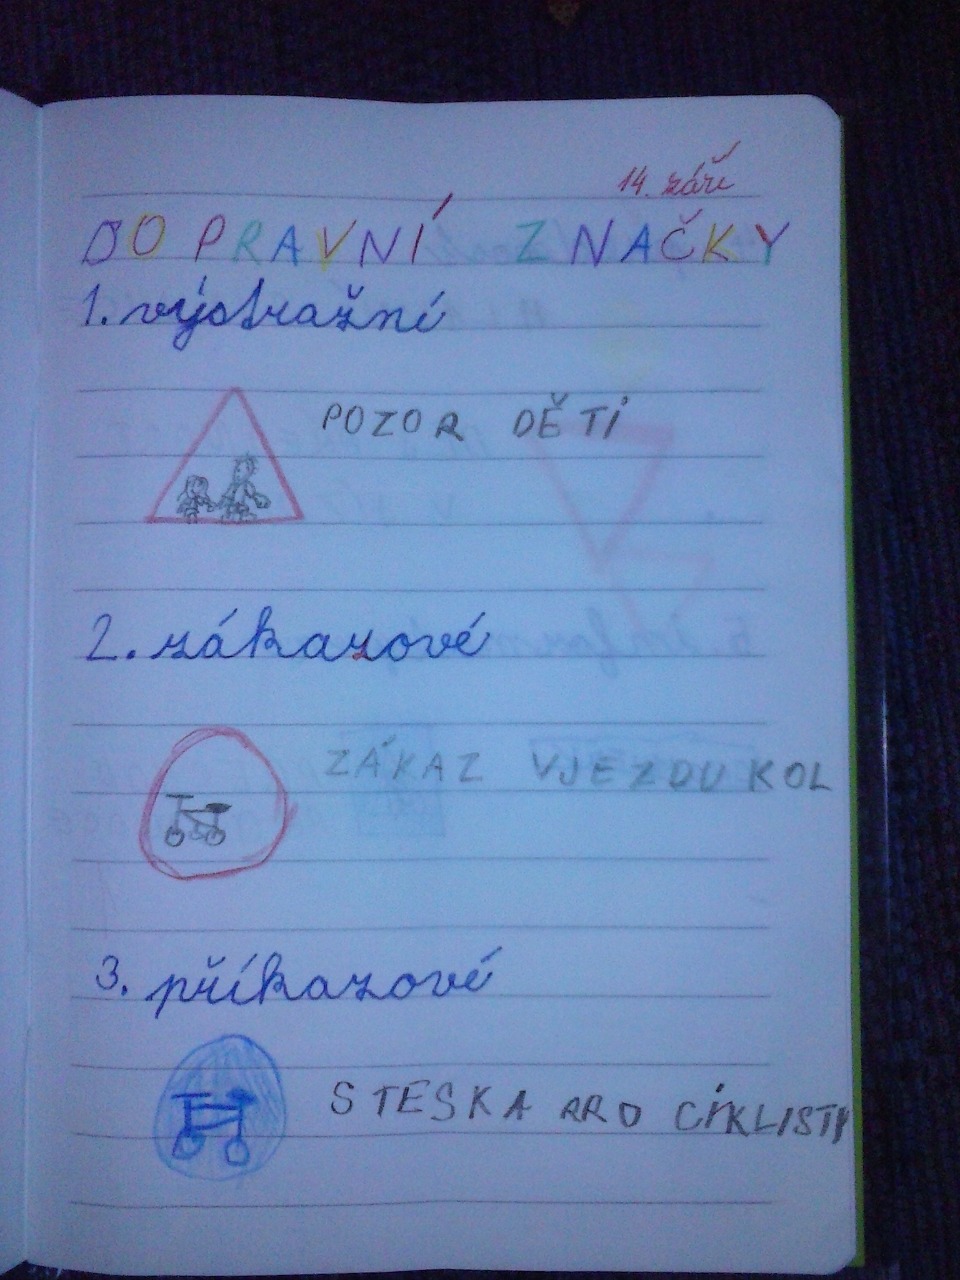 14. září
DOPRAVNÍ ZNAČKY
1. výstražné
POZOR DĚTI
2. zákazové
ZÁKAZ VJEZDU KOL
3. příkazové
STESKA PRO CÍKLISTY